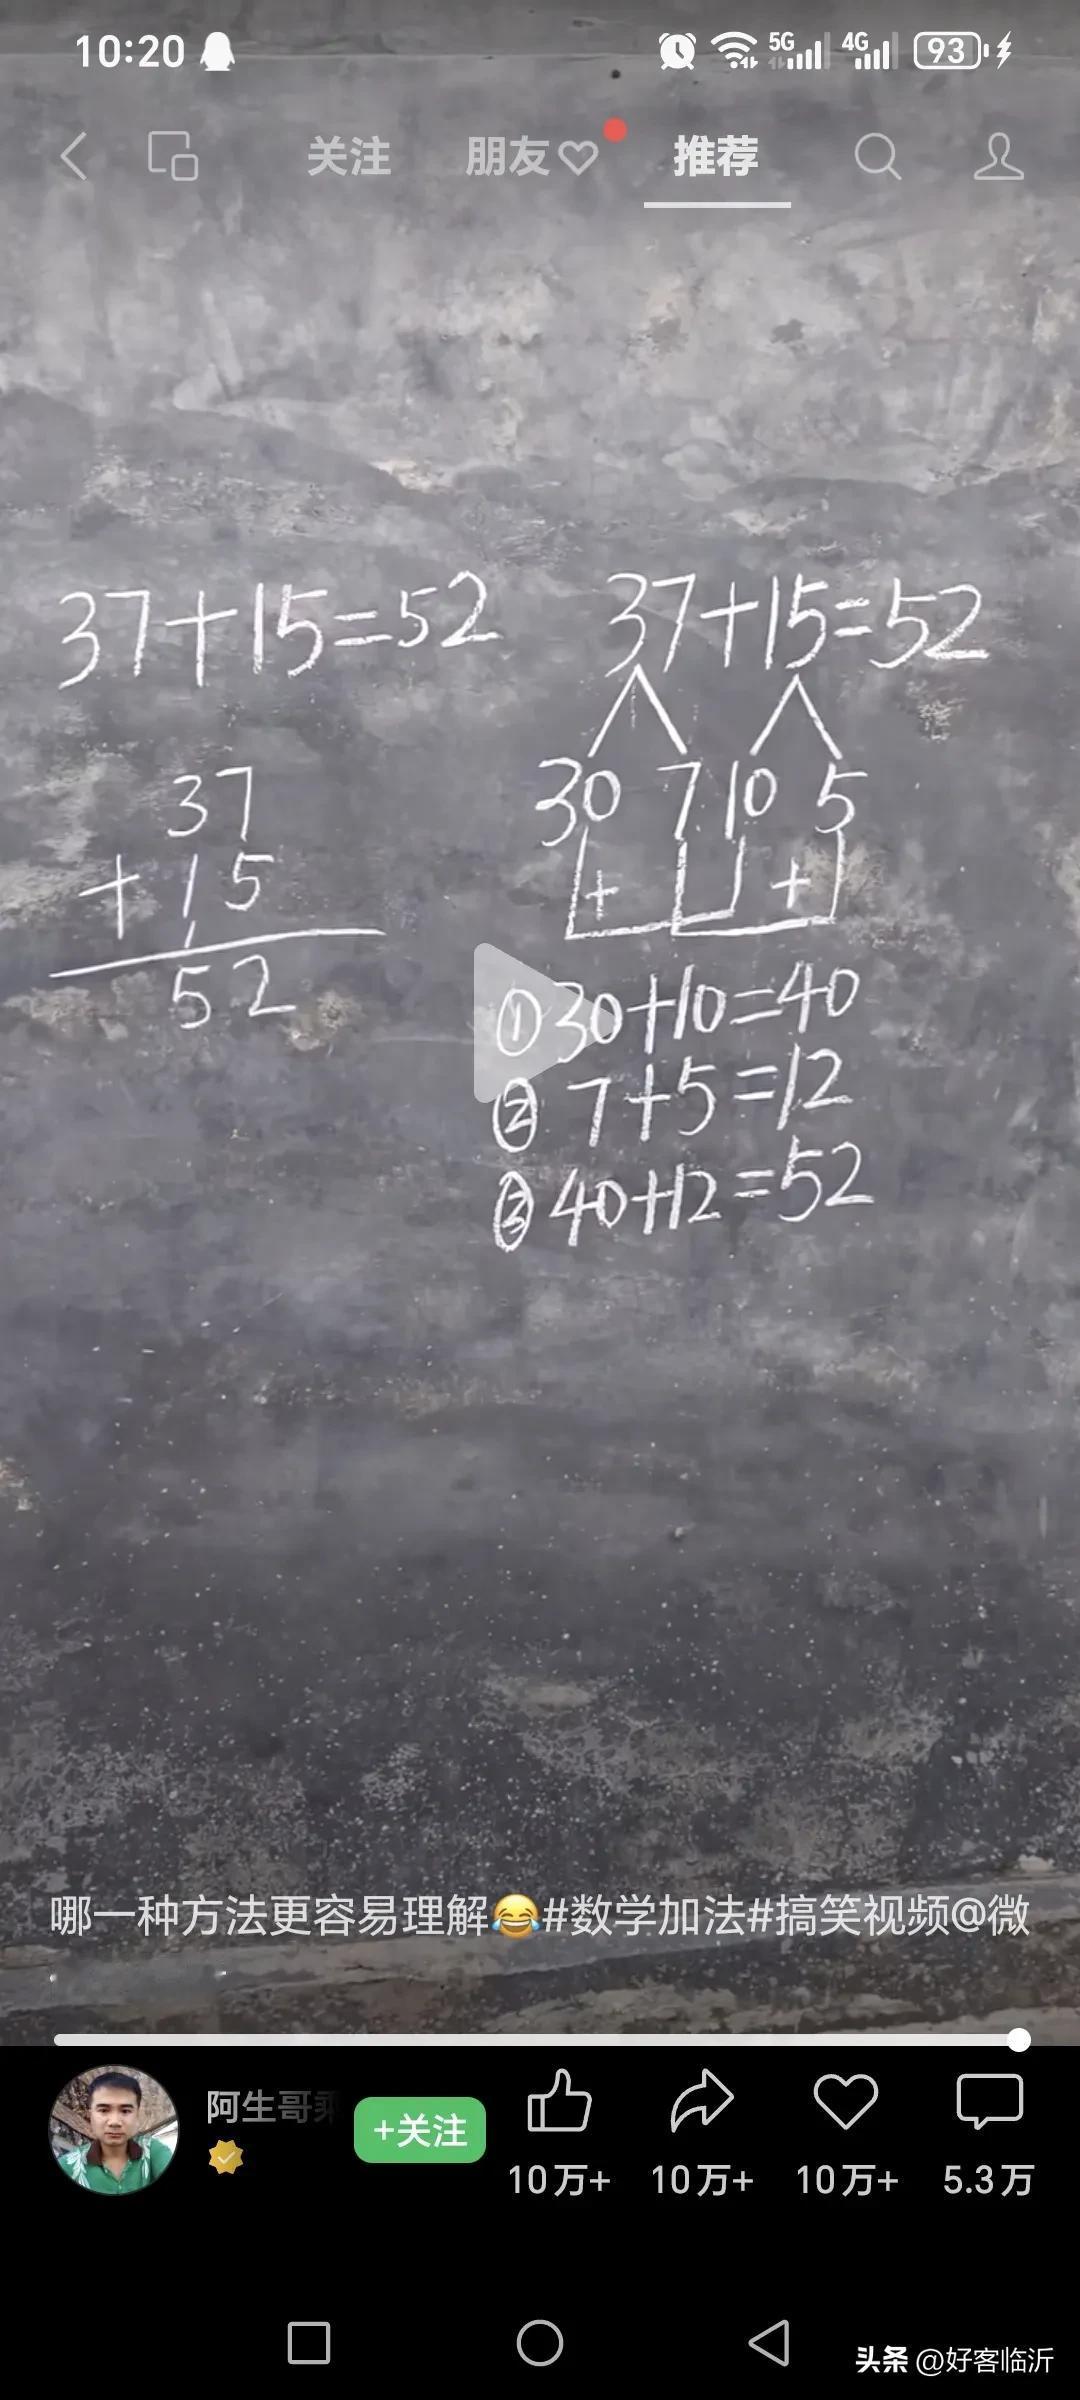 10:20 5G 4G 93
关注 朋友 推荐
37+15=52
37
+15
1
52
37+15=52
30 7 10 5
+ +
①30+10=40
②7+5=12
③40+12=52
哪一种方法更容易理解😂#数学加法#搞笑视频@微
阿生哥乘
+关注
10万+ 10万+ 10万+ 5.3万
头条 @好客临沂